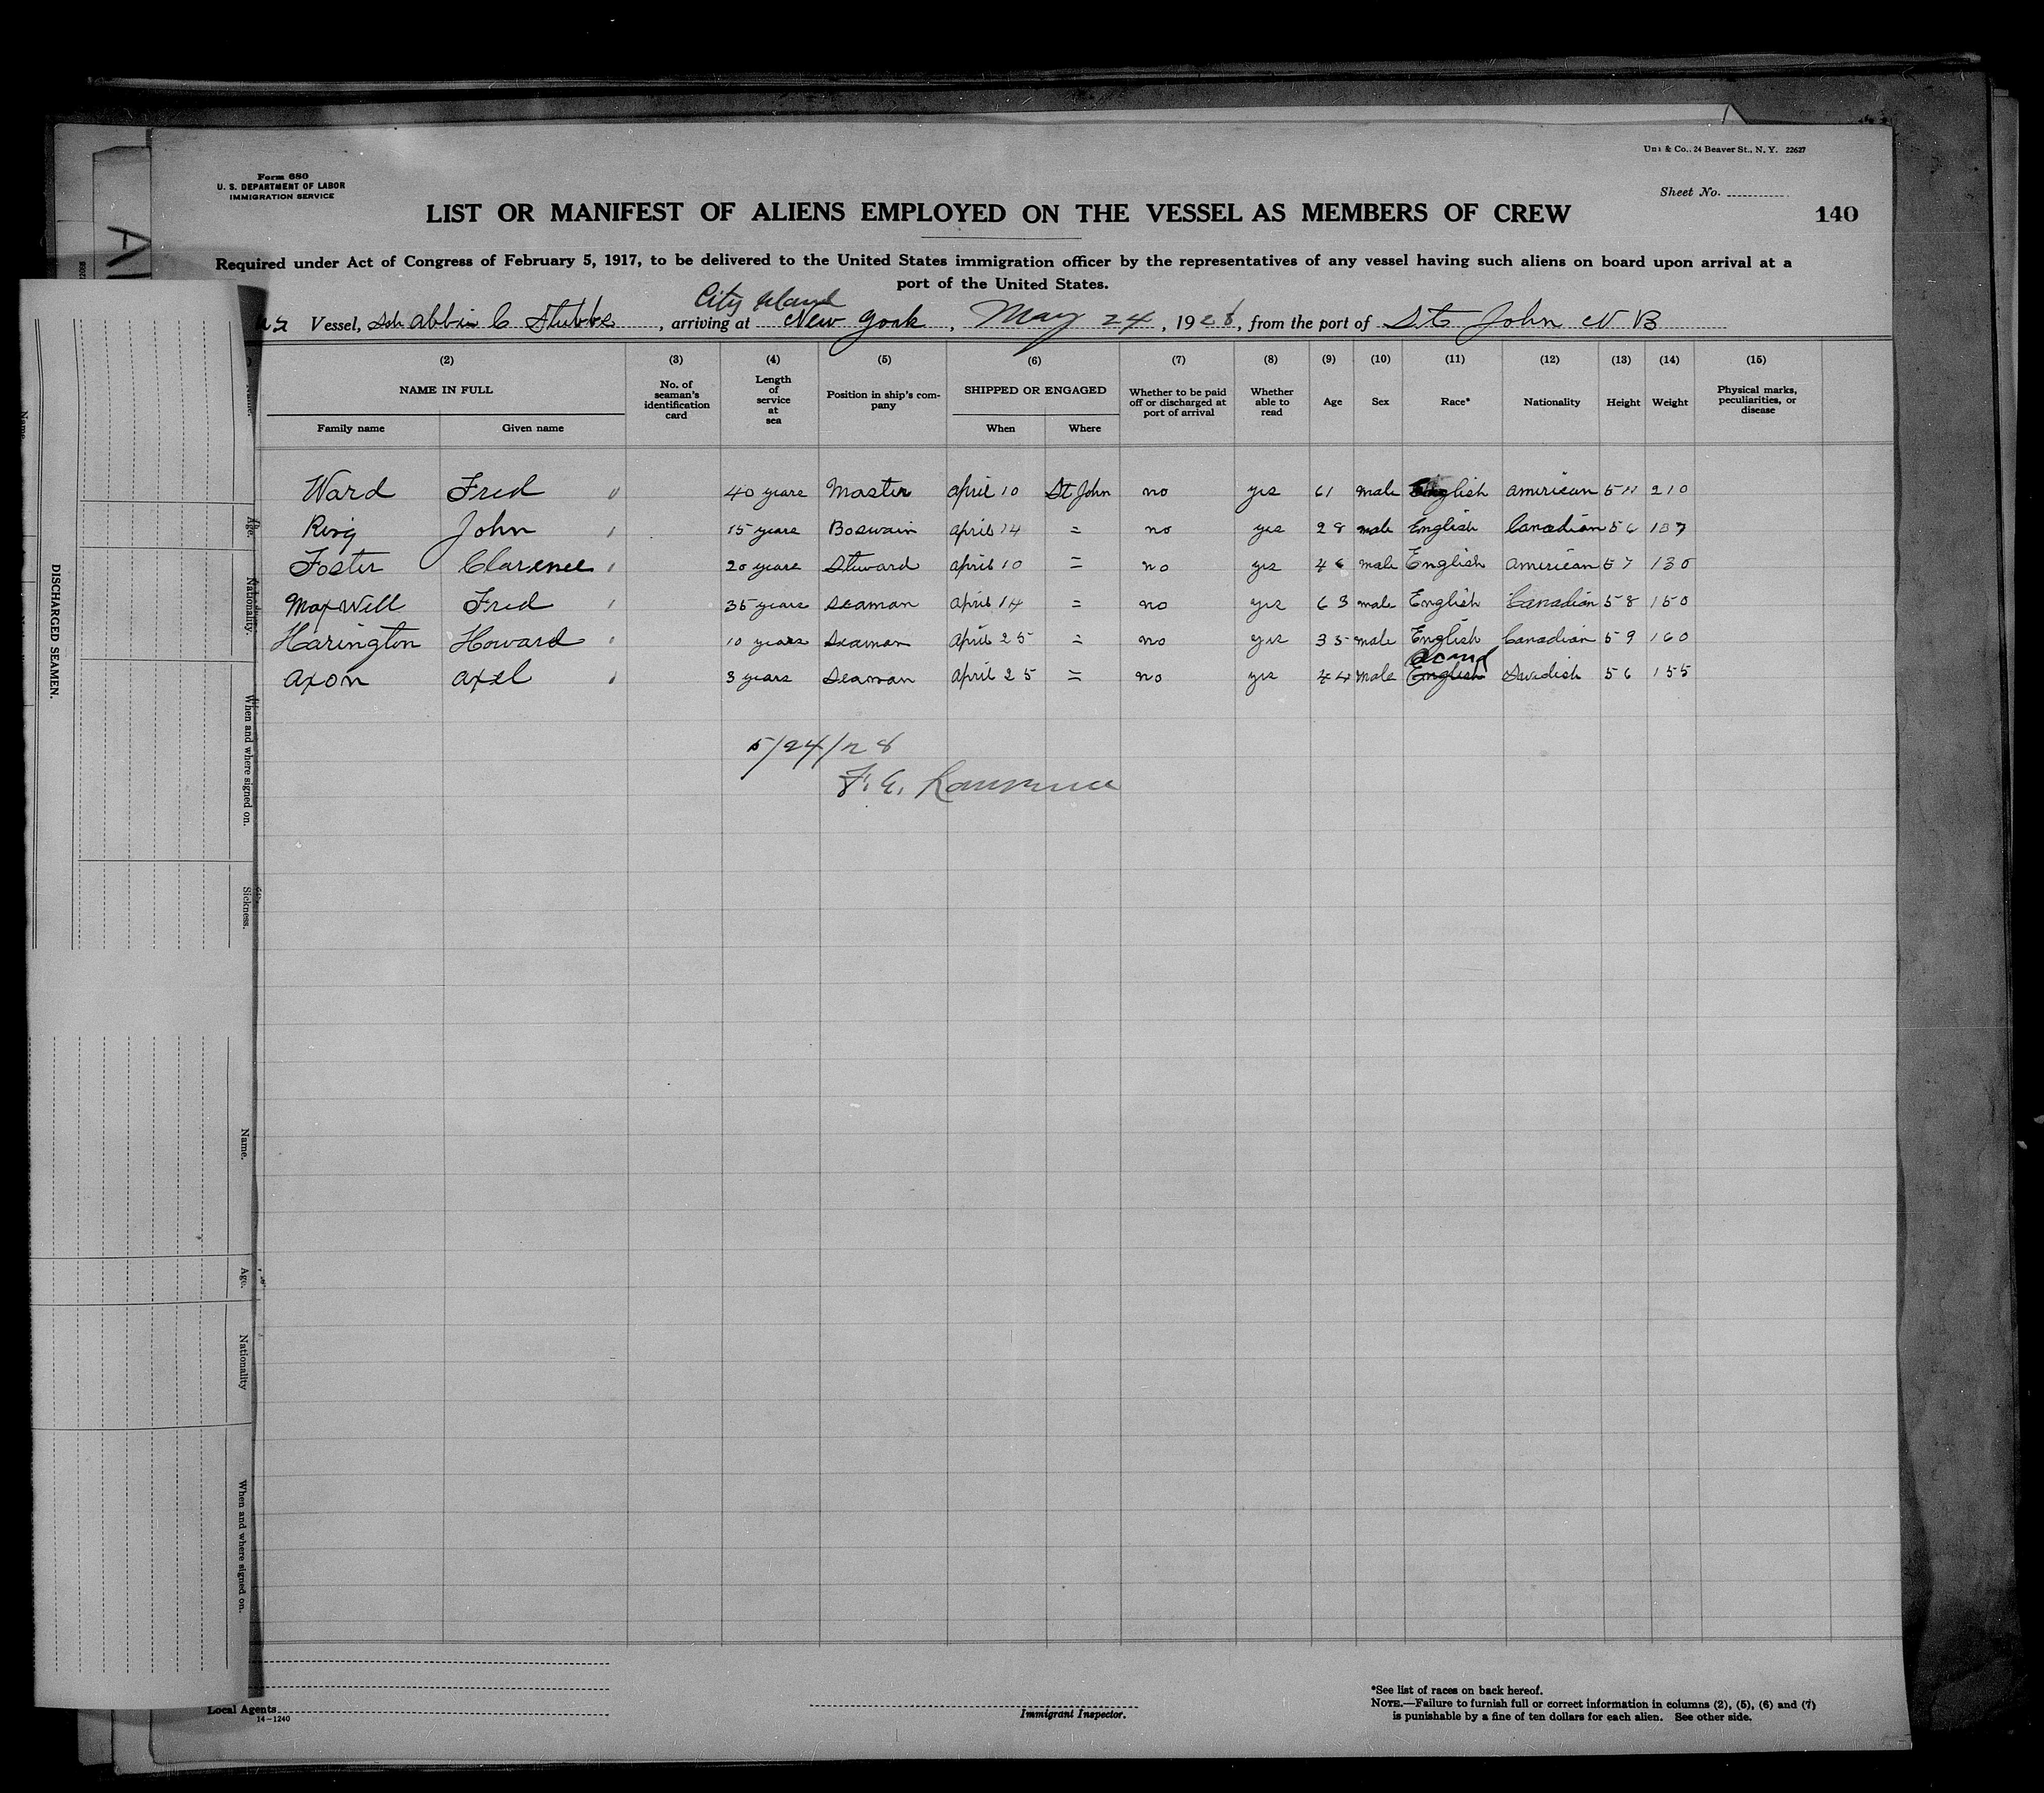 Uni & Co., 24 Beaver St., N. Y. 22627
Form 680
U. S. DEPARTMENT OF LABOR
IMMIGRATION SERVICE
Sheet No.
LIST OR MANIFEST OF ALIENS EMPLOYED ON THE VESSEL AS MEMBERS OF CREW
140
Required under Act of Congress of February 5, 1917, to be delivered to the United States immigration officer by the representatives of any vessel having such aliens on board upon arrival at a
port of the United States.
City Island
Vessel, Sch Abbie C Stubbs, arriving at New York, May 24, 1928, from the port of St John N B
(2) (3) (4) (5) (6) (7) (8) (9) (10) (11) (12) (13) (14) (15)
NAME IN FULL No. of seaman's identification card Length of service at sea Position in ship's company SHIPPED OR ENGAGED Whether to be paid off or discharged at port of arrival Whether able to read Age Sex Race* Nationality Height Weight Physical marks, peculiarities, or disease
Family name Given name When Where
Ward Fred 40 years Master April 10 St John no yes 61 male English American 5 11 210
Ring John 15 years Boswain April 14 = no yes 28 male English Canadian 5 6
Foster Clarence 20 years Steward April 10 = no yes 46 male English American 5 7 130
Maxwell Fred 35 years Seaman April 14 = no yes 63 male English Canadian 5 8 150
Harington Howard 10 years Seaman April 25 = no yes 35 male English Canadian 5 9 160
Scand
Axon Axel 3 years Seaman April 25 = no yes 44 male English Swedish 5 6 155
5/24/28
F. E. Lawrence
DISCHARGED SEAMEN.
Name.
Age.
Nationality.
When and where signed on.
Sickness.
Name.
Age.
Nationality
When and where signed on.
Local Agents
14-1240
Immigrant Inspector.
*See list of races on back hereof.
NOTE.—Failure to furnish full or correct information in columns (2), (5), (6) and (7)
is punishable by a fine of ten dollars for each alien. See other side.